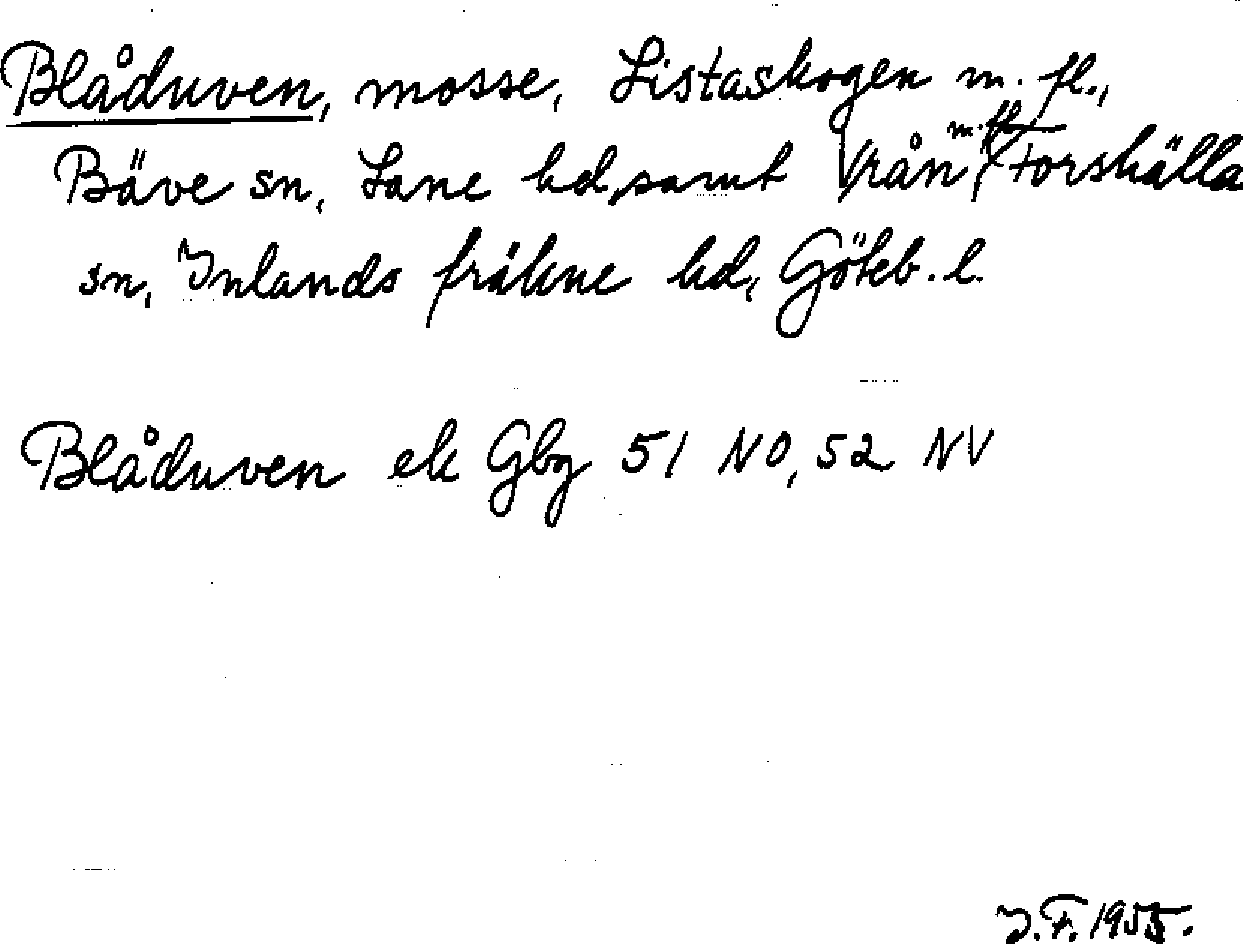 Blåduven, mosse, Listaskogen m. fl.,
Bäve sn, Lane hd, samt Vrån m. fl. Forshälla
sn, Inlands fräkne hd, Göteb. l.
Blåduven ek Gbg 51 NO, 52 NV
J. F. 1955.